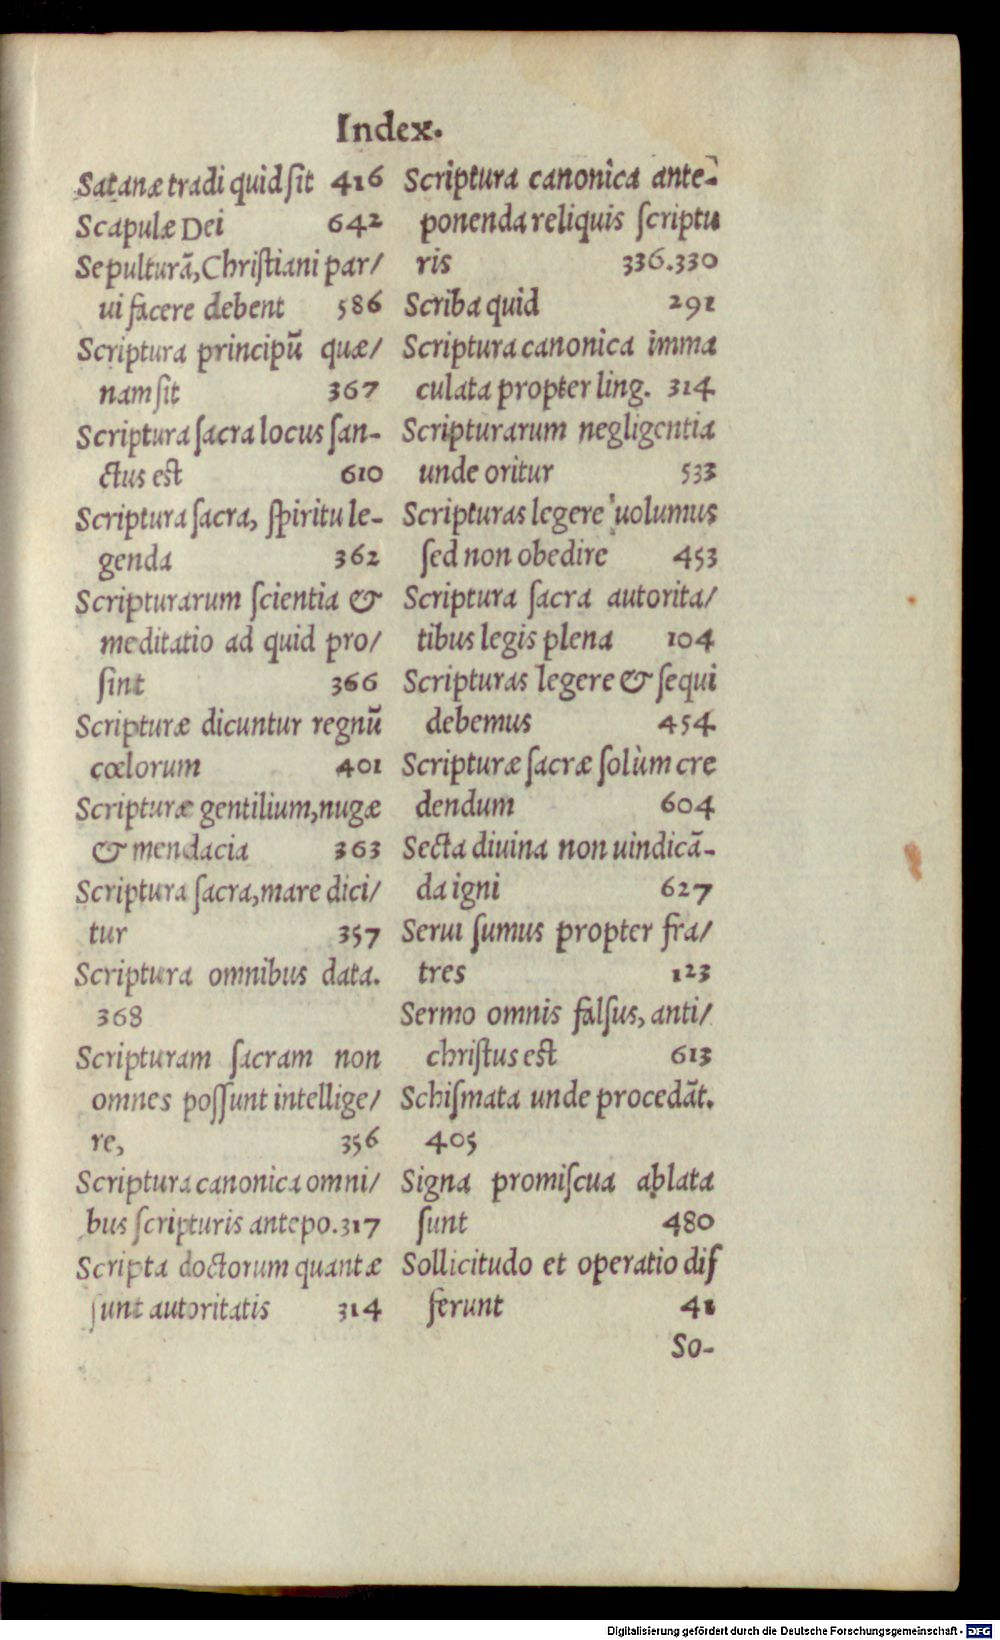 Index.
Satanæ tradi quid ſit 416
Scapulæ Dei 642
Sepulturā, Chriſtiani par/
ui facere debent 586
Scriptura principū quæ/
nam ſit 367
Scriptura ſacra locus ſan-
ctus est 610
Scriptura ſacra, ſpiritu le-
genda 362
Scripturarum ſcientia &
meditatio ad quid pro/
ſint 366
Scripturæ dicuntur regnū
cœlorum 401
Scripturæ gentilium, nugæ
& mendacia 363
Scriptura ſacra, mare dici/
tur 357
Scriptura omnibus data.
368
Scripturam ſacram non
omnes poſſunt intellige/
re, 356
Scriptura canonica omni/
bus ſcripturis antepo. 317
Scripta doctorum quantæ
ſunt autoritatis 314
Scriptura canonica ante-
ponenda reliquis ſcriptu
ris 336.330
Scriba quid 291
Scriptura canonica imma
culata propter ling. 314
Scripturarum negligentia
unde oritur 533
Scripturas legere uolumus
ſed non obedire 453
Scriptura ſacra autorita/
tibus legis plena 104
Scripturas legere & ſequi
debemus 454
Scripturæ ſacræ ſolùm cre
dendum 604
Secta diuina non uindicā-
da igni 627
Serui ſumus propter fra/
tres 123
Sermo omnis falſus, anti/
chriſtus est 613
Schiſmata unde procedāt.
405
Signa promiſcua ablata
ſunt 480
Sollicitudo et operatio diſ
ferunt 41
So-
Digitalisierung gefördert durch die Deutsche Forschungsgemeinschaft - DFG